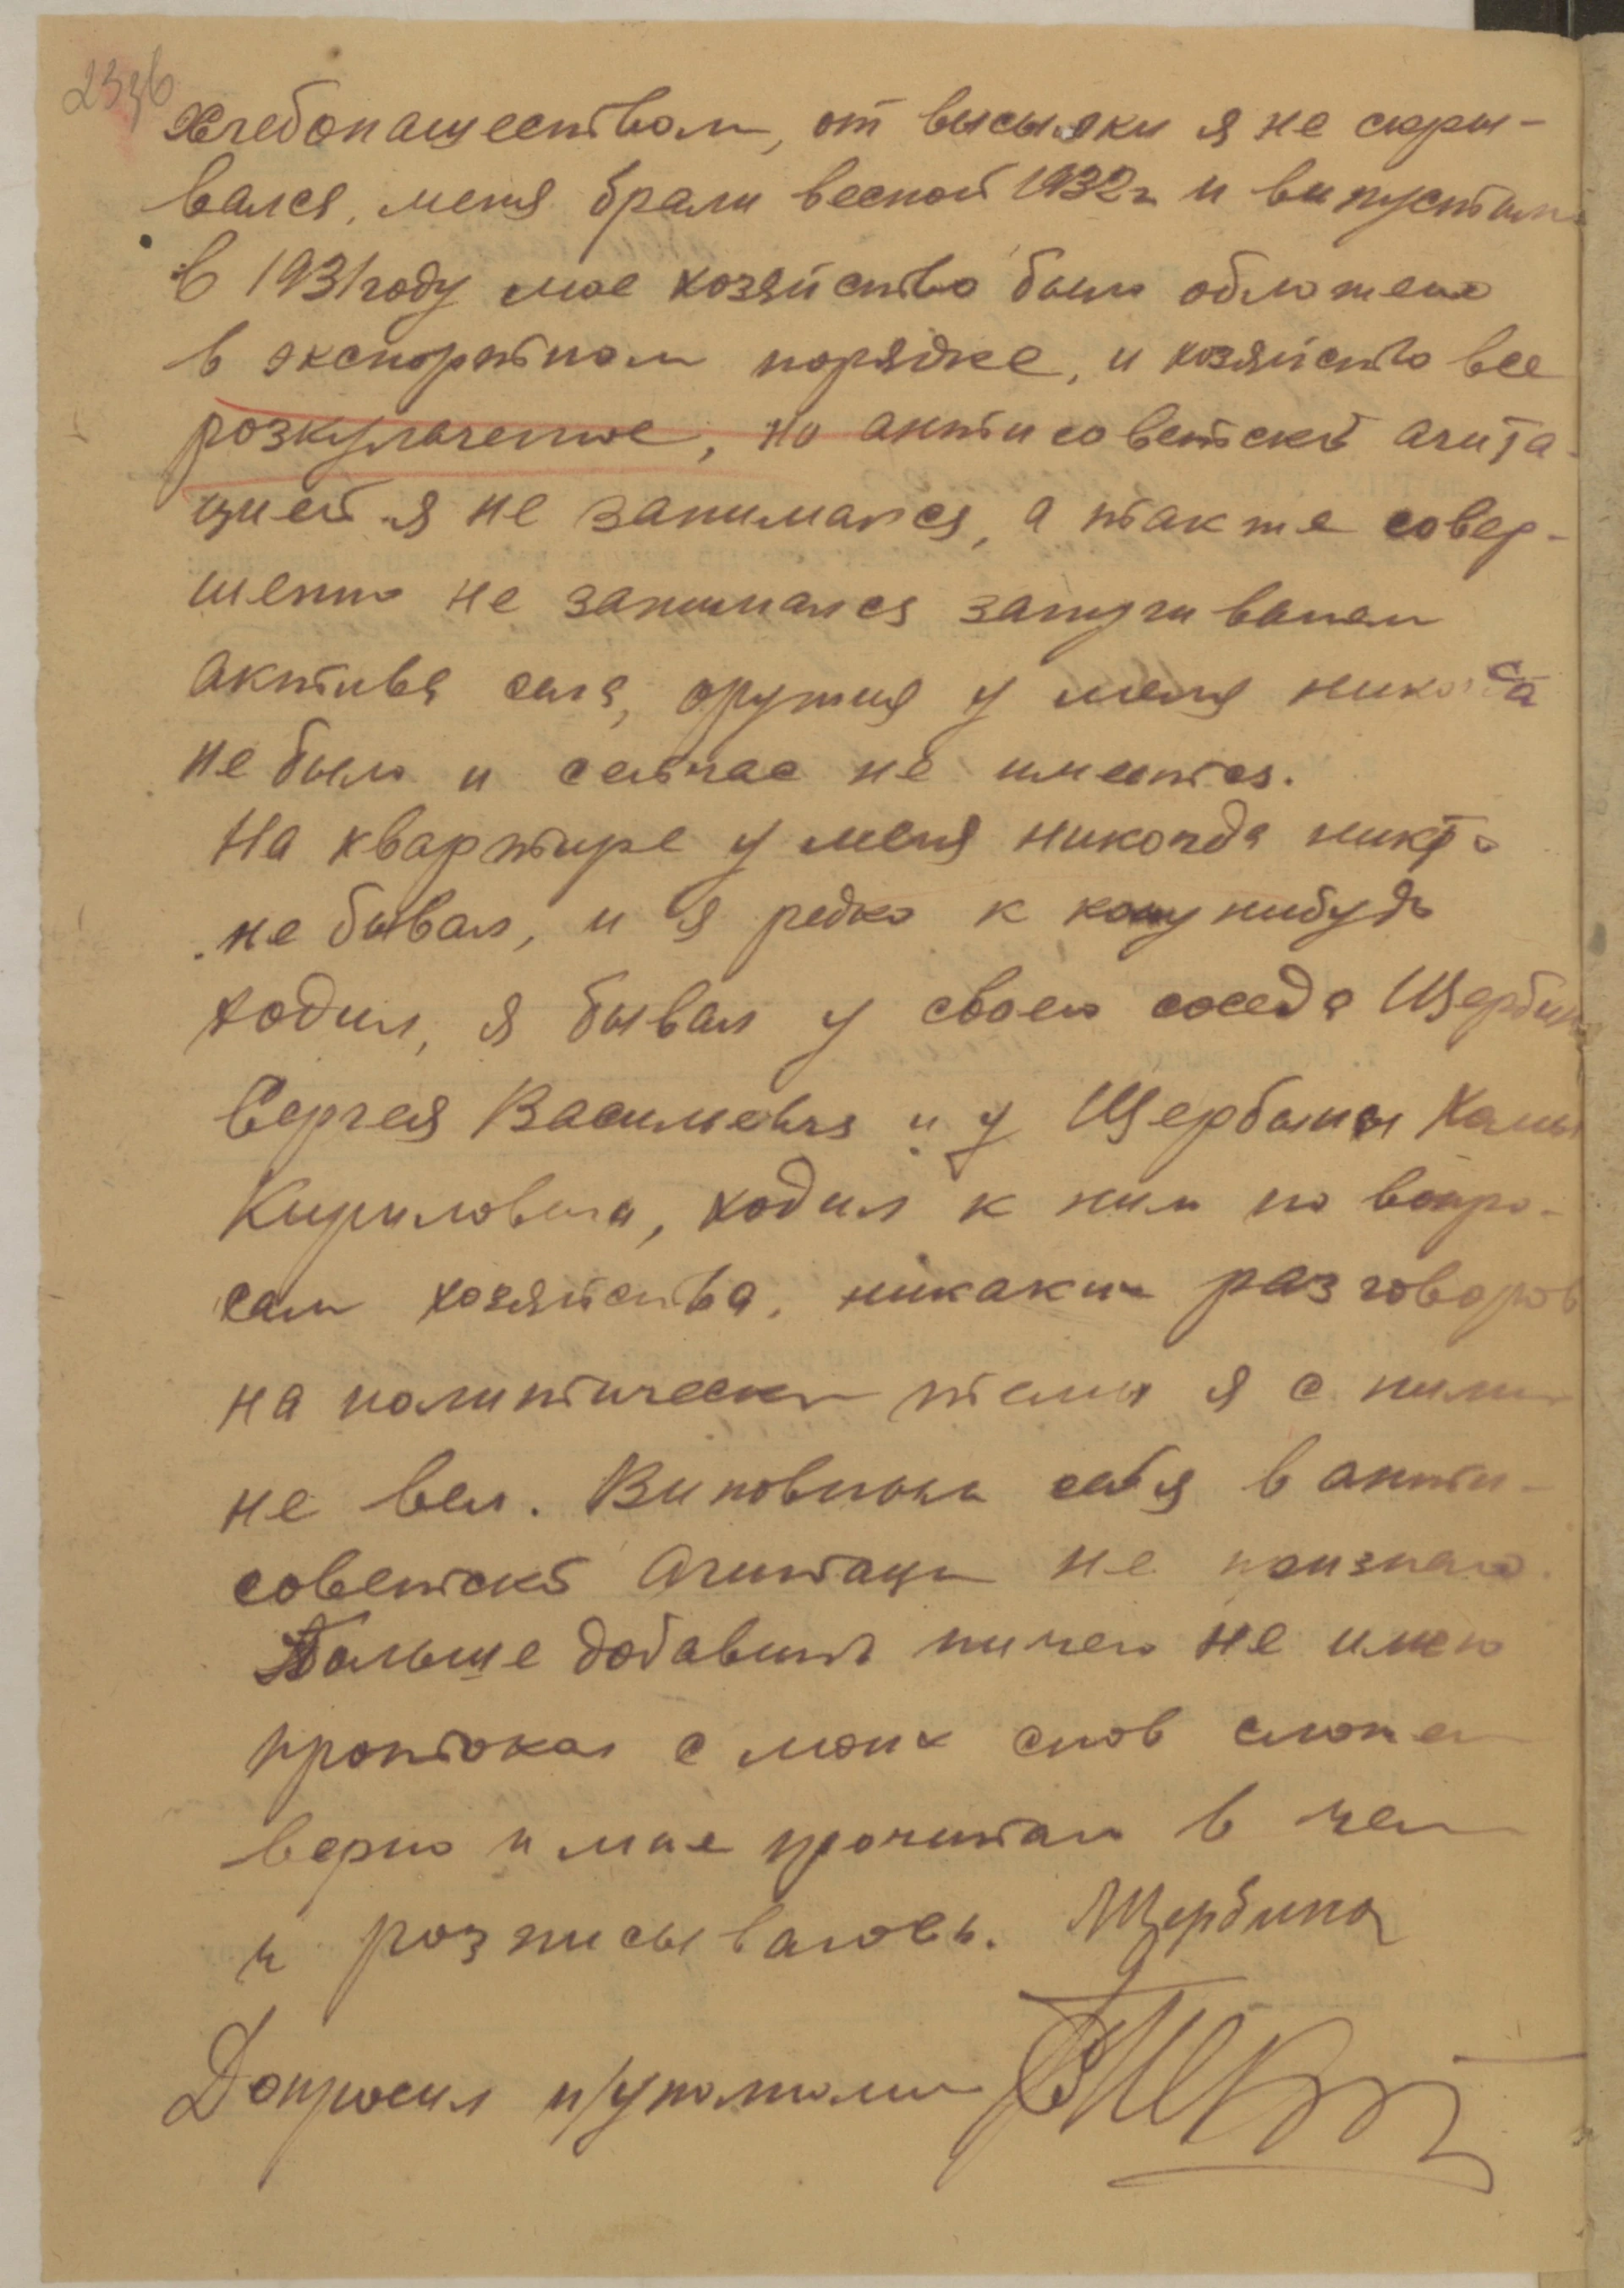 хлебопашеством, от высылки я не скры-
вался, меня брали весной 1932 г. и выпустили
в 1931 году мое хозяйство было обложено
в экспортном порядке, и хозяйство все
розкулаченное, но антисоветской агита-
цией я не занимался, а также совер-
шенно не занимался запугиванем
актива села, оружия у меня никогда
не было и сейчас не имеется.
На квартире у меня никогда никто
не бывал, и я редко к кому нибудь
ходил, я бывал у своего соседа Щербины
Сергея Василевича и у Щербины
Кириловича, ходил к ним по вопро-
сам хозяйства, никаких разговоров
на политически темы я с ними
не вел. Виновным себя в анти-
советской агитации не признаю.
Больше добавить ничего не имею
протокол с моих слов сложен
верно и мне прочитан в чем
и розписываюсь. Щербина
Допросил п/уполном